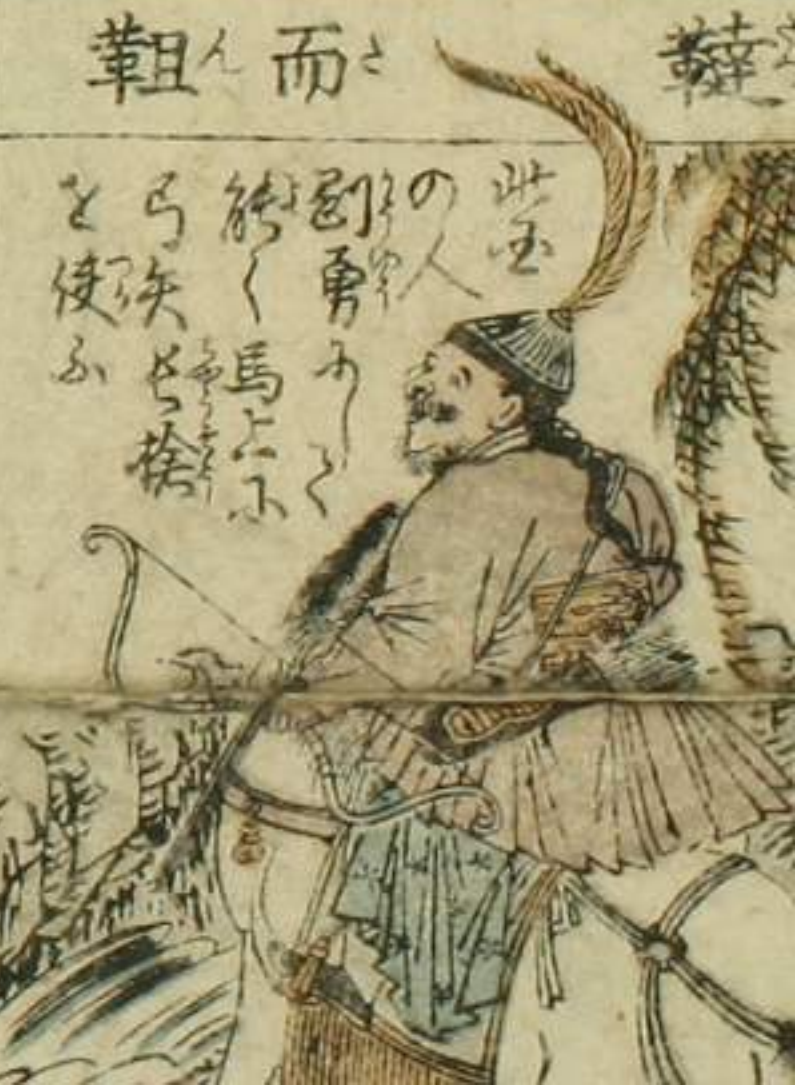 韃而靼
此国
の人
剛勇にして
能く馬上に
弓矢長槍
を使ふ